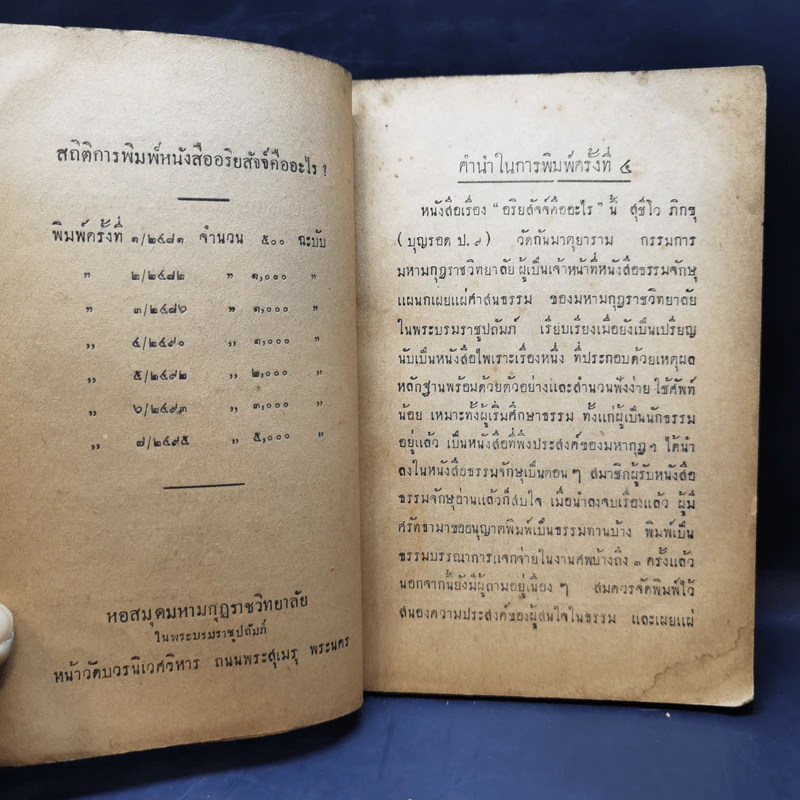 สถิติการพิมพ์หนังสืออริยสัจจ์คืออะไร ?
พิมพ์ครั้งที่ ๑/๒๔๘๑ จำนวน ๕๐๐ ฉะบับ
" ๒/๒๔๘๒ " ๑,๐๐๐ "
" ๓/๒๔๘๖ " ๑,๐๐๐ "
" ๔/๒๔๙๐ " ๑,๐๐๐ "
" ๕/๒๔๙๒ " ๒,๐๐๐ "
" ๖/๒๔๙๓ " ๓,๐๐๐ "
" ๗/๒๔๙๕ " ๕,๐๐๐ "
หอสมุดมหามกุฏราชวิทยาลัย
ในพระบรมราชูปถัมภ์
หน้าวัดบวรนิเวศวิหาร ถนนพระสุเมรุ พระนคร
คำนำในการพิมพ์ครั้งที่ ๔
หนังสือเรื่อง "อริยสัจจ์คืออะไร" นี้ สุชีโว ภิกขุ
(บุญรอด ป. ๙) วัดกันมาตุยาราม กรรมการ
มหามกุฏราชวิทยาลัย ผู้เป็นเจ้าหน้าที่หนังสือธรรมจักษุ
แผนกเผยแผ่ศาสนธรรม ของมหามกุฏราชวิทยาลัย
ในพระบรมราชูปถัมภ์ เรียบเรียงเมื่อยังเป็นเปรียญ
นับเป็นหนังสือไพเราะเรื่องหนึ่ง ที่ประกอบด้วยเหตุผล
หลักฐานพร้อมด้วยตัวอย่างและสำนวนฟังง่าย ใช้ศัพท์
น้อย เหมาะทั้งผู้เริ่มศึกษาธรรม ทั้งแก่ผู้เป็นนักธรรม
อยู่แล้ว เป็นหนังสือที่พึงประสงค์ของมหากุฏ ฯ ได้นำ
ลงในหนังสือธรรมจักษุเป็นตอน ๆ สมาชิกผู้รับหนังสือ
ธรรมจักษุอ่านแล้วก็สบใจ เมื่อนำลงจบเรื่องแล้ว ผู้มี
ศรัทธามาขออนุญาตพิมพ์เป็นธรรมทานบ้าง พิมพ์เป็น
ธรรมบรรณาการแจกจ่ายในงานศพบ้างถึง ๓ ครั้งแล้ว
นอกจากนี้ยังมีผู้ถามอยู่เนือง ๆ สมควรจัดพิมพ์ไว้
สนองความประสงค์ของผู้สนใจในธรรม และเผยแผ่